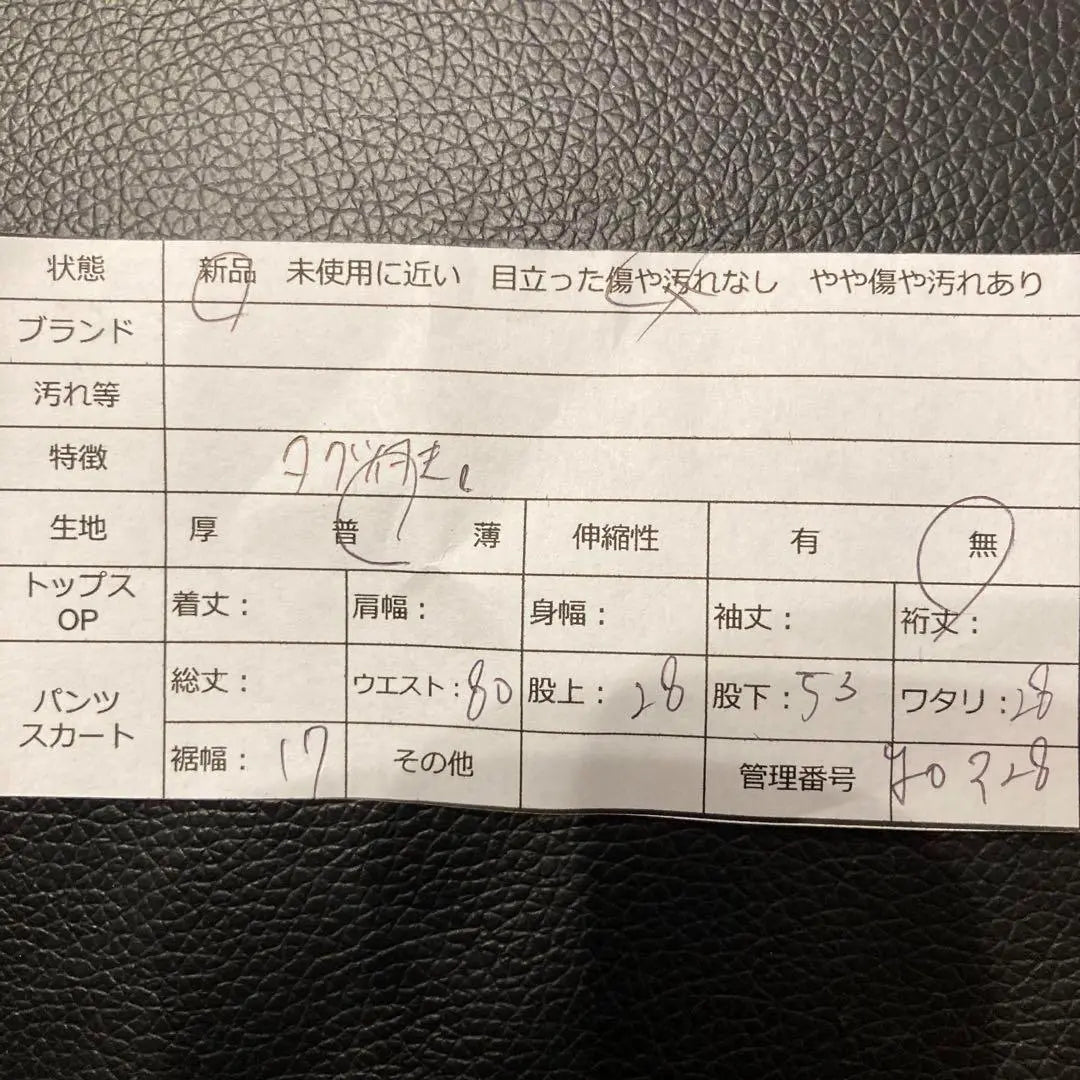 状態 新品 未使用に近い 目立った傷や汚れなし やや傷や汚れあり
ブランド
汚れ等
特徴 タグ付き。
生地 厚 普 薄 伸縮性 有 無
トップス OP 着丈: 肩幅: 身幅: 袖丈: 裄丈:
パンツ スカート 総丈: ウエスト:80 股上:28 股下:53 ワタリ:28
裾幅:17 その他 管理番号